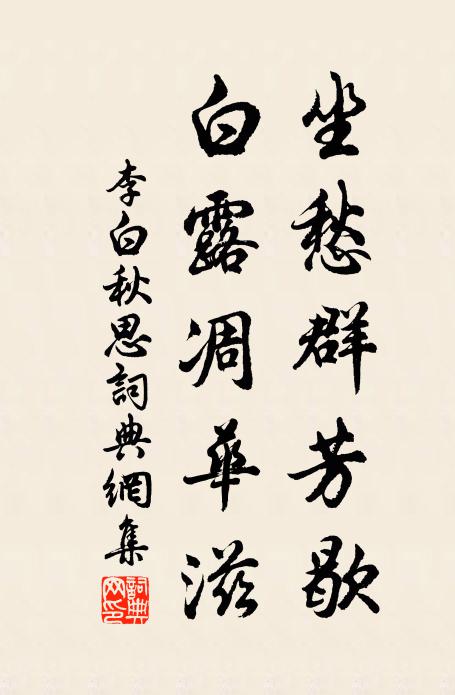 坐愁群芳歇
白露凋華滋
李白秋思詞典網集
詞典網印